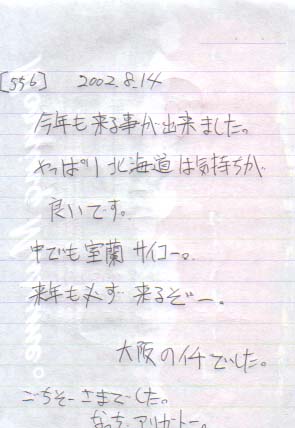 [556] 2002.8.14
今年も来る事が出来ました。
やっぱり北海道は気持ちが
良いです。
中でも室蘭サイコー。
来年も必ず来るぞー。
大阪のイチでした。
ごちそーさまでした。
なっち アリガトー。